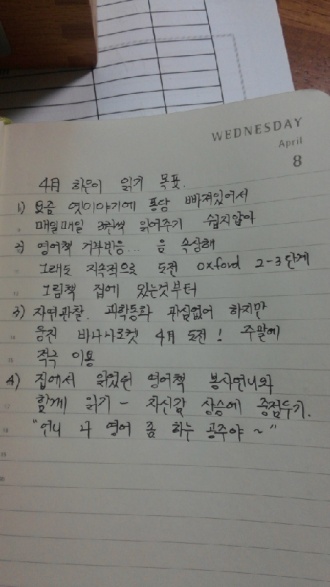 WEDNESDAY
April
8
4월 하은이 읽기 목표.
1) 요즘 옛이야기에 퐁당 빠져있어서
매일매일 3권씩 읽어주기 쉽지않아
2) 영어책 거부반응... 음 속상해
그래도 지속적으로 도전 oxford 2-3단계
그림책 집에 있는것부터
3) 자연관찰. 과학동화 관심없어 하지만
웅진 바나나로켓 4월 도전! 주말에
적극 이용
4) 집에서 읽었던 영어책 봉사언니와
함께 읽기 - 자신감 상승에 중점두기.
"언니 나 영어 좀 하는 공주야 ~"